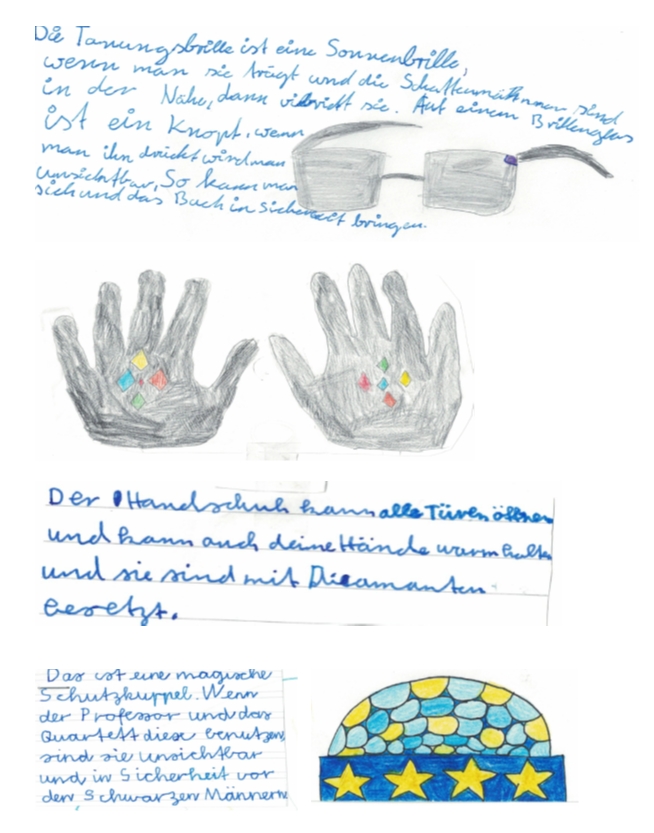 Die Tanungsbrille ist eine Sonnenbrille,
wenn man sie trägt und die Schattenmänner sind
in der Nähe, dann vibriert sie. Auf einem Brillenglas
ist ein Knopf, wenn
man ihn drückt wird man
unsichtbar, So kann man
sich und das Buch in Sicherheit bringen.
Der Handschuh kann alle Türen öffnen
und kann auch deine Hände warm halten
und sie sind mit Dieamanten
besetzt.
Das ist eine magische
Schutzkuppel. Wenn
der Professor und das
Quartett diese benutzen,
sind sie unsichtbar
und in Sicherheit vor
den Schwarzen Männern